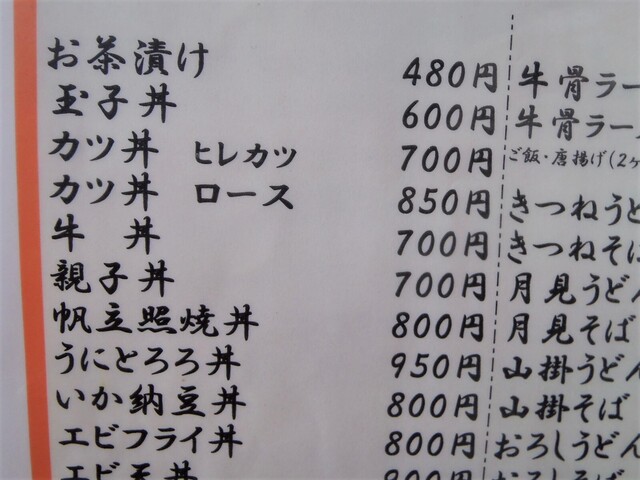 お茶漬け 480円
玉子丼 600円
カツ丼 ヒレカツ 700円
カツ丼 ロース 850円
牛 丼 700円
親子丼 700円
帆立照焼丼 800円
うにとろろ丼 950円
いか納豆丼 800円
エビフライ丼 800円
エビ天丼
牛骨ラー
牛骨ラー
ご飯・唐揚げ(2ヶ
きつねうど
きつねそば
月見うどん
月見そば
山掛うどん
山掛そば
おろしうどん